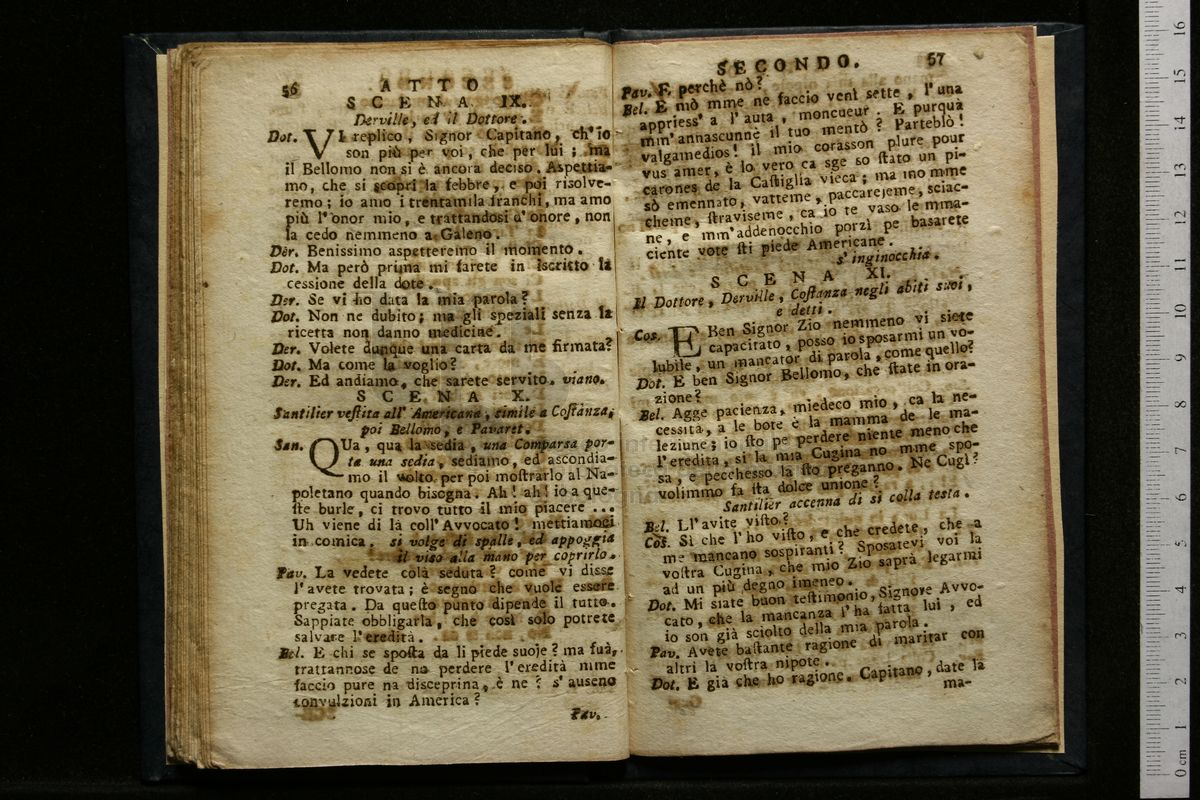 56
ATTO
SCENA IX.
Derville, ed il Dottore.
Dot. VI replico, Signor Capitano, ch'io
son più per voi, che per lui; ma
il Bellomo non si è ancora deciso. Aspettia-
mo, che si scopri la febbre, e poi risolve-
remo; io amo i trentamila franchi, ma amo
più l'onor mio, e trattandosi d'onore, non
la cedo nemmeno a Galeno.
Der. Benissimo aspetteremo il momento.
Dot. Ma però prima mi farete in iscritto la
cessione della dote.
Der. Se vi ho data la mia parola?
Dot. Non ne dubito; ma gli speziali senza la
ricetta non danno medicine.
Der. Volete dunque una carta da me firmata?
Dot. Ma come la voglio?
Der. Ed andiamo, che sarete servito. viano.
SCENA X.
Santilier veſtita all' Americana, simile a Coſtanza,
poi Bellomo, e Pavaret.
San. QUa, qua la sedia, una Comparsa por-
ta una sedia, sediamo, ed ascondia-
mo il volto per poi moſtrarlo al Na-
poletano quando bisogna. Ah! ah! io a que-
ſte burle, ci trovo tutto il mio piacere ...
Uh viene di là coll'Avvocato! mettiamoci
in comica. si volge di spalle, ed appoggia
il viso alla mano per coprirlo.
Pav. La vedete colà seduta? come vi disse
l'avete trovata; è segno che vuole essere
pregata. Da queſto punto dipende il tutto.
Sappiate obbligarla, che così solo potrete
salvare l'eredità.
Bel. E chi se spoſta da li piede suoje? ma fuà,
trattannose de no perdere l'eredità mme
faccio pure na disceprina, è ne? s'auseno
convulzioni in America?
Pav.
SECONDO. 57
Pav. E perchè nò?
Bel. E mò mme ne faccio venì sette, l'una
appriess'a l'auta, moncueur. E purquà
mm'annascunnè il tuo mentò? Parteblò!
valgamedios! il mio corasson plure pour
vus amer, è lo vero ca sge so ſtato un pi-
carones de la Caſtiglia vieca; ma mo mme
sò emennato, vatteme, paccarejeme, sciac-
cheme, ſtraviseme, ca io te vaso le mma-
ne, e mm'addenocchio porzì pe basarete
ciente vote ſti piede Americane.
s'inginocchia.
SCENA XI.
Il Dottore, Derville, Coſtanza negli abiti suoi,
e detti.
Cos. EBen Signor Zio nemmeno vi siete
capacitato, posso io sposarmi un vo-
lubile, un mancator di parola, come quello?
Dot. E ben Signor Bellomo, che ſtate in ora-
zione?
Bel. Agge pacienza, miedeco mio, ca la ne-
cessità, a le bote è la mamma de le ma-
leziune; io ſto pe perdere niente meno che
l'eredità, si la mia Cugina no mme spo-
sa, e pecchesso la ſto preganno. Ne Cugì?
volimmo fa ſta dolce unione?
Santilier accenna di sì colla testa.
Bel. Ll'avite viſto?
Cos. Sì che l'ho viſto, e che credete, che a
me mancano sospiranti? Sposatevi voi la
voſtra Cugina, che mio Zio saprà legarmi
ad un più degno imeneo.
Dot. Mi siate buon teſtimonio, Signore Avvo-
cato, che la mancanza l'ha fatta lui, ed
io son già sciolto della mia parola.
Pav. Avete baſtante ragione di maritar con
altri la voſtra nipote.
Dot. E già che ho ragione. Capitano, date la
ma-